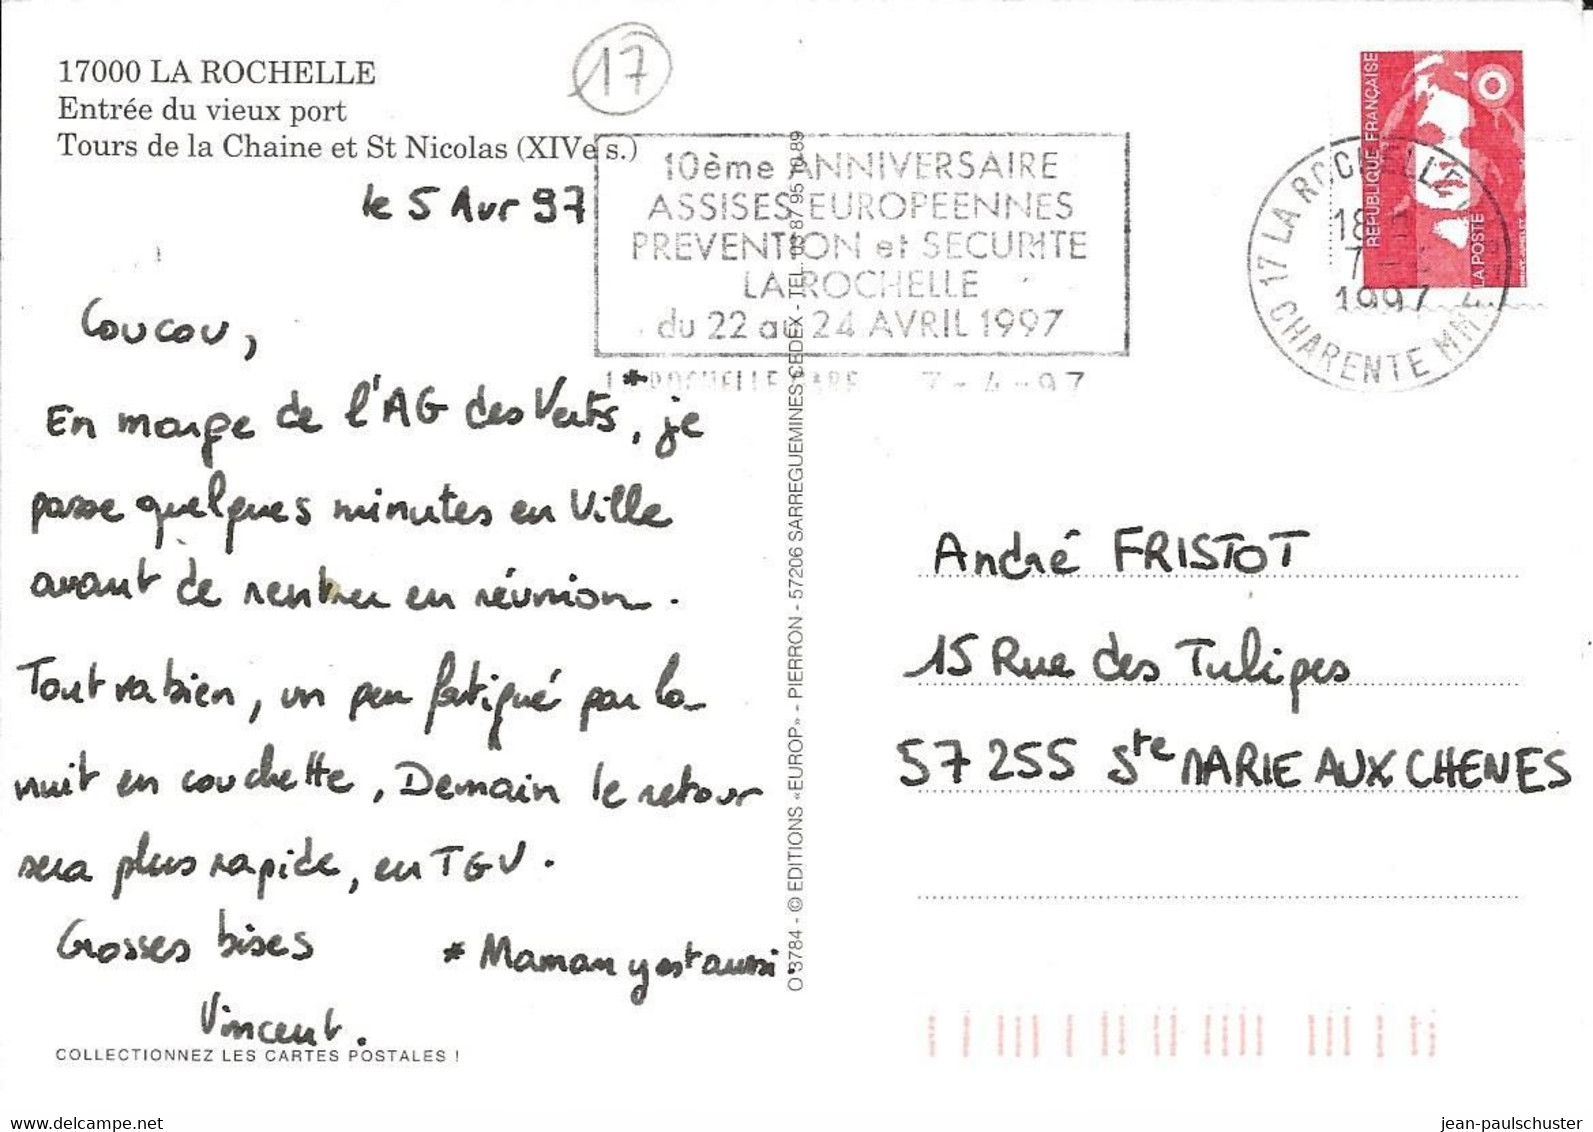 17000 LA ROCHELLE
Entrée du vieux port
Tours de la Chaine et St Nicolas (XIVe s.)
17
le 5 Avr 97
Coucou,
En marge de l'AG des Verts*, je
passe quelques minutes en Ville
avant de rentrer en réunion.
Tout va bien, un peu fatigué par la
nuit en couchette, Demain le retour
sera plus rapide, en TGV.
Grosses bises
* Maman y est aussi.
Vincent.
COLLECTIONNEZ LES CARTES POSTALES !
O 3784 - © EDITIONS «EUROP» - PIERRON - 57206 SARREGUEMINES CEDEX - TEL. 03 87 95 10 89
10ème ANNIVERSAIRE
ASSISES EUROPEENNES
PREVENTION et SECURITE
LA ROCHELLE
du 22 au 24 AVRIL 1997
LA ROCHELLE GARE 7-4-97
17 LA ROCHELLE
18
7
1997
CHARENTE MME
REPUBLIQUE FRANÇAISE
LA POSTE
André FRISTOT
15 Rue des Tulipes
57 255 Ste MARIE AUX CHENES
jean-paulschuster